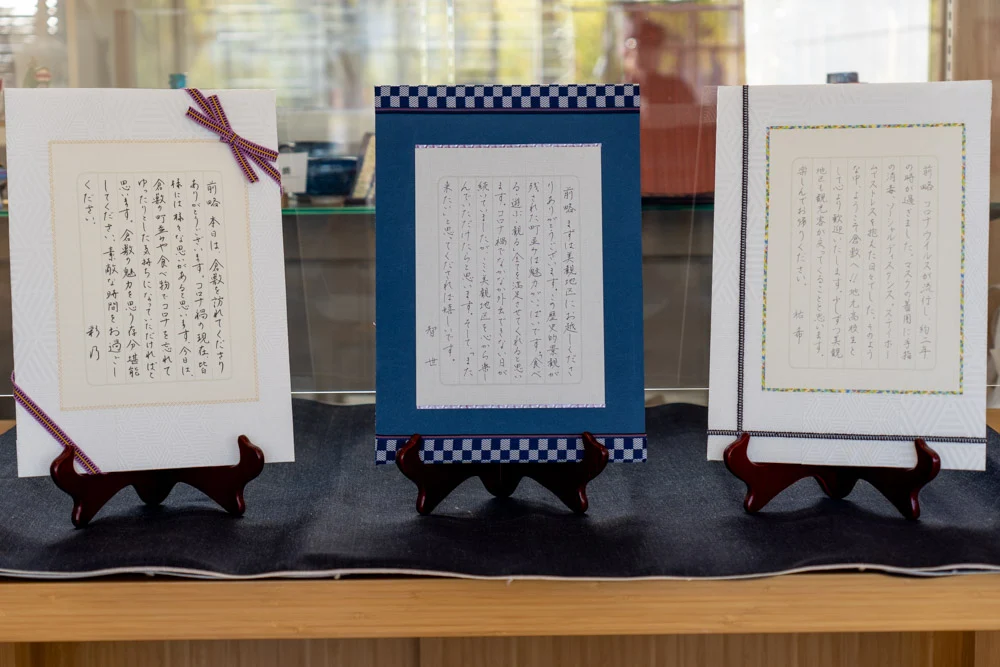 前略 本日は、倉敷を訪れてくださり
ありがとうございます。コロナ禍の現在、皆
様には様々な思いがあると思います。今日は、
倉敷の町並みや食べ物でコロナを忘れて
ゆったりとした気持ちになっていただければと
思います。倉敷の魅力を思う存分堪能
してください。素敵な時間をお過ごし
ください。
彩乃
前略 まずは美観地区にお越しくださ
りありがとうございます。この歴史的景観が
残された町並みは魅力がいっぱいです。食べ
る、遊ぶ、観る、全てを満足させてくれると思い
ます。コロナ禍でなかなか外出できない日が
続いていましたが、ここ美観地区を心から楽し
んでいただけたらと思います。そして、「また
来たい」と思ってくだされば嬉しいです。
智世
前略 コロナウイルスが流行し、約二年
の時が過ぎました。マスクの着用、手指
の消毒、ソーシャルディスタンス、ステイホー
ム、ストレスを抱えた日々でした。そのよう
な中、ようこそ倉敷へ!!地元高校生と
して心より歓迎
地区も観光客が戻ってくることと思います。
楽しんでお帰りください。
祐希